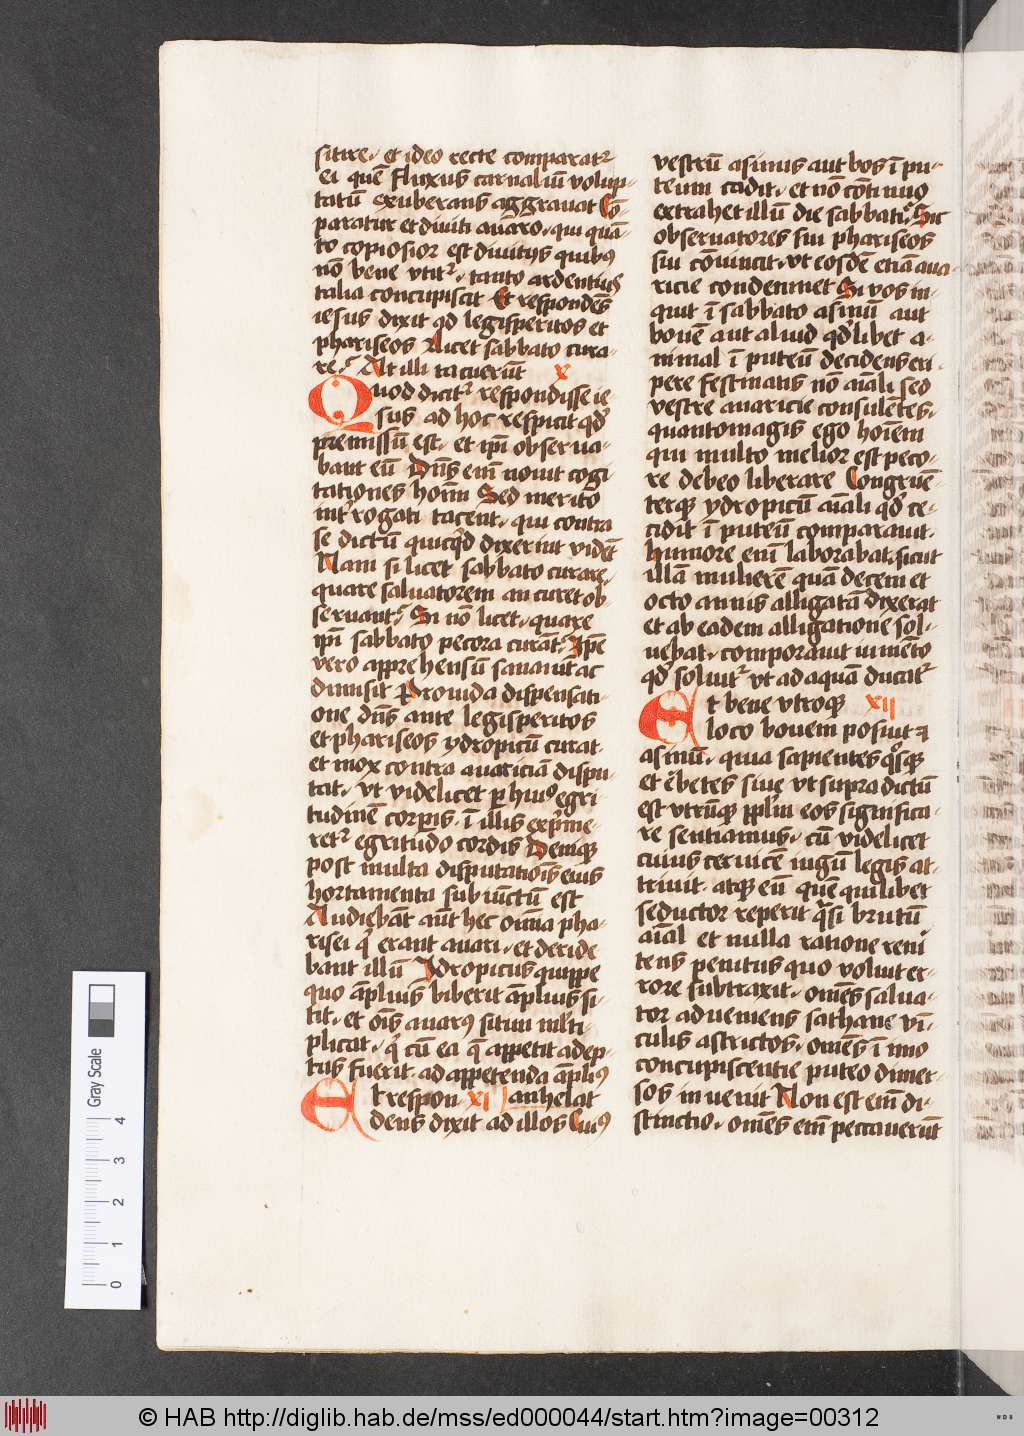 sitire. et ideo recte comparat᷑
ei quē fluxus carnaliū volup-
tatū exuberans aggravat Cō-
paratur et diviti avaro. qui quā-
to copiosior est divitijs quibꝰ
nō bene vtit᷑. tanto ardentius
talia concupiscit Et respondēs
iesus dixit qd legisperitos et
phariseos Licet sabbato cura-
re. At illi tacuerūt x
Quod dicit᷑ respondisse ie
sus ad hoc respicit qd
premissū est. et ip̄i observa-
bant eū Dn̄s em̄ novit cogi
tationes hoīm Sed merito
int᷑rogati tacent. qui contra
se dictū quicqd dixerint vidēt
Nam si licet sabbato curare.
quare salvatorem an curet ob-
servant. Si nō licet. quare
ip̄i sabbato pecora curāt. Ip̄e
vero apprehensū sanavit ac
dimisit Provida dispensati-
one dn̄s ante legisperitos
et phariseos ydropicū curat
et mox contra avariciā dispu-
tat. vt videlicet ꝑ huiꝰ egri-
tudinē corp̄is. ī illis exp̄me-
ret᷑ egritudo cordis Deniqꝫ
post multa disputatiōis eius
hortamenta subiūctū est
Audiebāt aūt hec om̄ia pha-
risei q̄ erant avari. et deride
bant illū Idropicus quippe
quo āplius biberit āplius si-
tit. et oīs avarꝰ sitim ml̄ti-
plicat. q̄ cū ea q̄ appetit adep-
tus fuerit. ad appetenda āpliꝰ
Et respon- xi anhelat
dens dixit ad illos Cuiꝰ
vestrū asinus aut bos ī pu-
teum cadit. et nō cōtinuo
extrahet illū die sabbati. Sic
observatores sui phariseos
sui cōvincit. vt eosdē etiā ava-
ricie condemnet Si vos in-
quit ī sabbato asinū aut
bovē aut aliud qdlibet a-
nimal ī puteū decidens eri-
pere festinatis nō aīali sed
vestre avaricie consulētes.
quantomagis ego hoīem
qui multo melior est peco-
re debeo liberare Congruē-
terqꝫ ydropicū aīali qd ce-
cidit ī puteū comparavit.
humore enī laborabat. sicut
illā mulierē quā decem et
octo annis alligatā dixerat
et ab eadem alligatione sol-
vebat. comparavit iumēto
qd solvit᷑ vt ad aquā ducat᷑
Et bene vtroqꝫ xii
loco bovem posuit ⁊
asinū. quia sapientes qͦsqꝫ
et ēbetes sive vt supra dictū
est vtrūqꝫ ppl̄m eos significa-
re sentiamus. cū videlicet
cuius cervicē iugū legis at-
trivit. atqꝫ eū quē quilibet
seductor reperit q̄si brutū
aīal et nulla ratione reni
tens penitus quo voluit er-
rore subtraxit. om̄es salva-
tor adveniens sathane vī-
culis astrictos. om̄es ī imo
concupiscentie puteo dimer-
sos invenit Non est em̄ di-
stinctio. om̄es em̄ peccaverūt
Gray Scale
0 1 2 3 4
© HAB http://diglib.hab.de/mss/ed000044/start.htm?image=00312